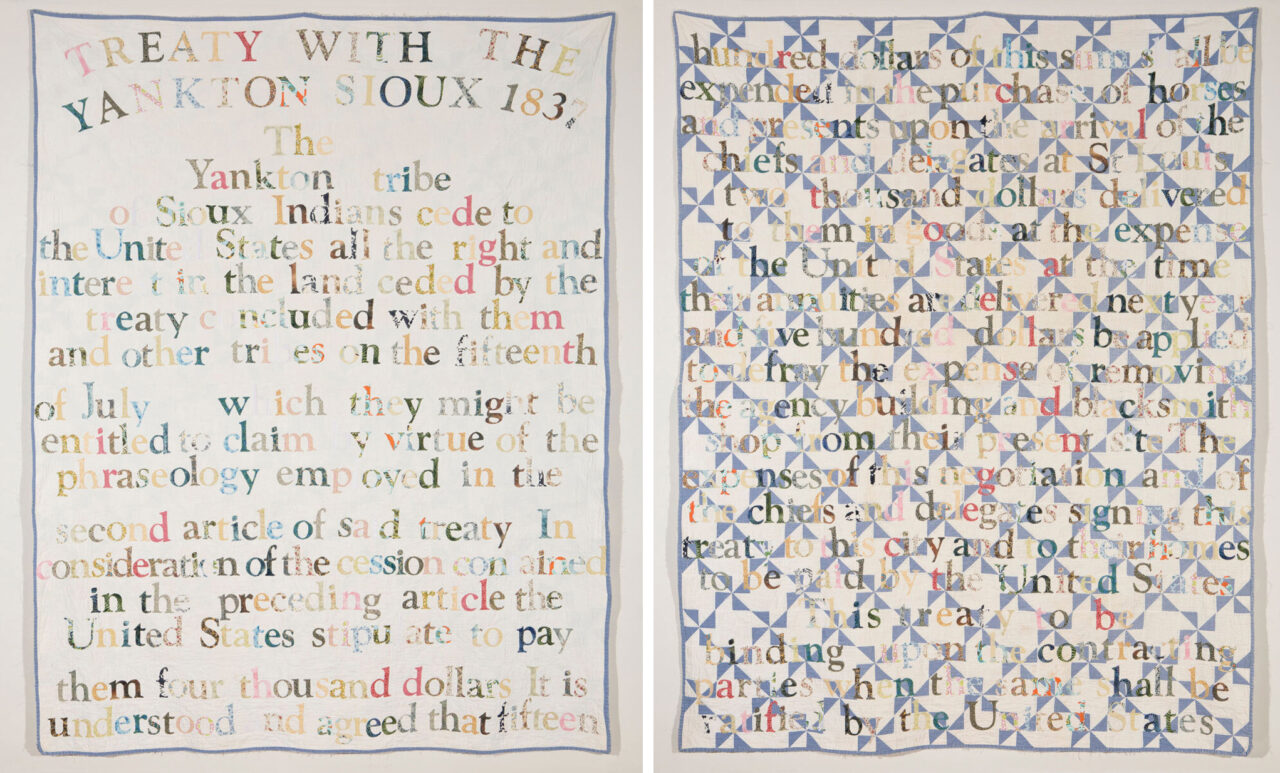 TREATY WITH THE
YANKTON SIOUX 1837
The
Yankton tribe
of Sioux Indians cede to
the Unite States all the right and
intere t in the land ceded by the
treaty c ncluded with them
and other tri es on the fifteenth
of July w ich they might be
entitled to claim y virtue of the
phraseology emp oyed in the
second article of sa d treaty In
consideration of the cession con ained
in the preceding article the
United States stipu ate to pay
them four thousand dollars It is
understood nd agreed that fifteen
hundred dollars of this sum s all be
expended in the purchase of horses
and presents upon the arrival of the
chiefs and delegates at St Louis
two thousand dollars delivered
to them in goods at the expense
of the United States at the time
their annuities are delivered next year
and five hundred dollars be applied
to defray the expense of removing
the agency building and blacksmith
shop from their present site The
expenses of this negotiation and of
the chiefs and delegates signing this
treaty to this city and to their homes
to be paid by the United States
This treaty to be
binding upon the contracting
parties when the same shall be
ratified by the United States